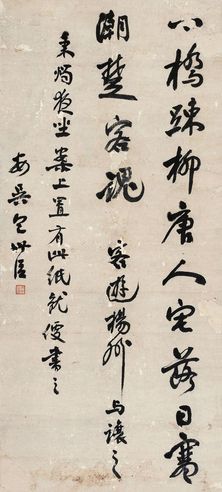 小橋疎柳唐人宅落日寒
潮楚客魂 客遊揚州與讓之
秉燭夜坐案上置有此紙就便書之
安吳包世臣